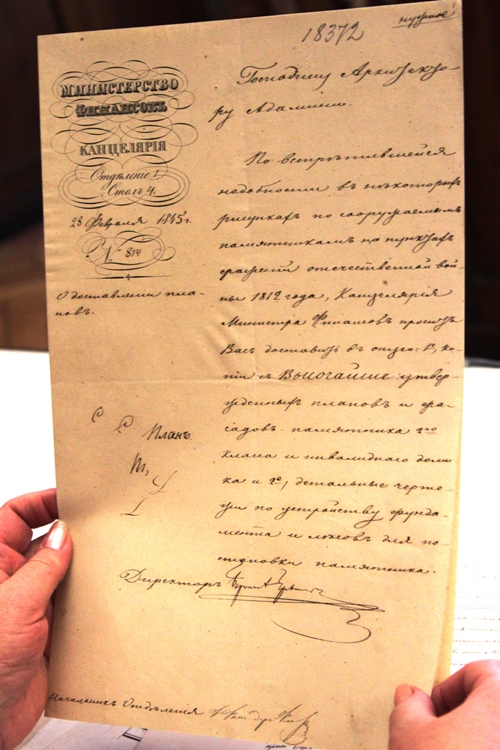 18372
МИНИСТЕРСТВО
ФИНАНСОВЪ
КАНЦЕЛЯРІЯ
Отдѣленіе 1.
Столъ 4.
28 Февраля 1845 г.
№ 814
О доставленіи пла-
новъ.
Господину Архитекто-
ру Адамини.
По встрѣтившейся
надобности въ нѣкоторыхъ
рисункахъ по сооружаемымъ
памятникамъ на пунктахъ
сраженій отечественной вой-
ны 1812 года, Канцелярія
Министра Финансовъ проситъ
Васъ доставить въ оную: 1, ко-
піи съ Высочайше утвер-
жденныхъ плановъ и фа-
садовъ памятника 2го
класса и инвалиднаго доми-
ка и 2е, детальные черте-
жи по устройству фунда-
мента и лѣсовъ для по
становки памятника.
С С Планъ
Директоръ
Начальникъ Отдѣленія